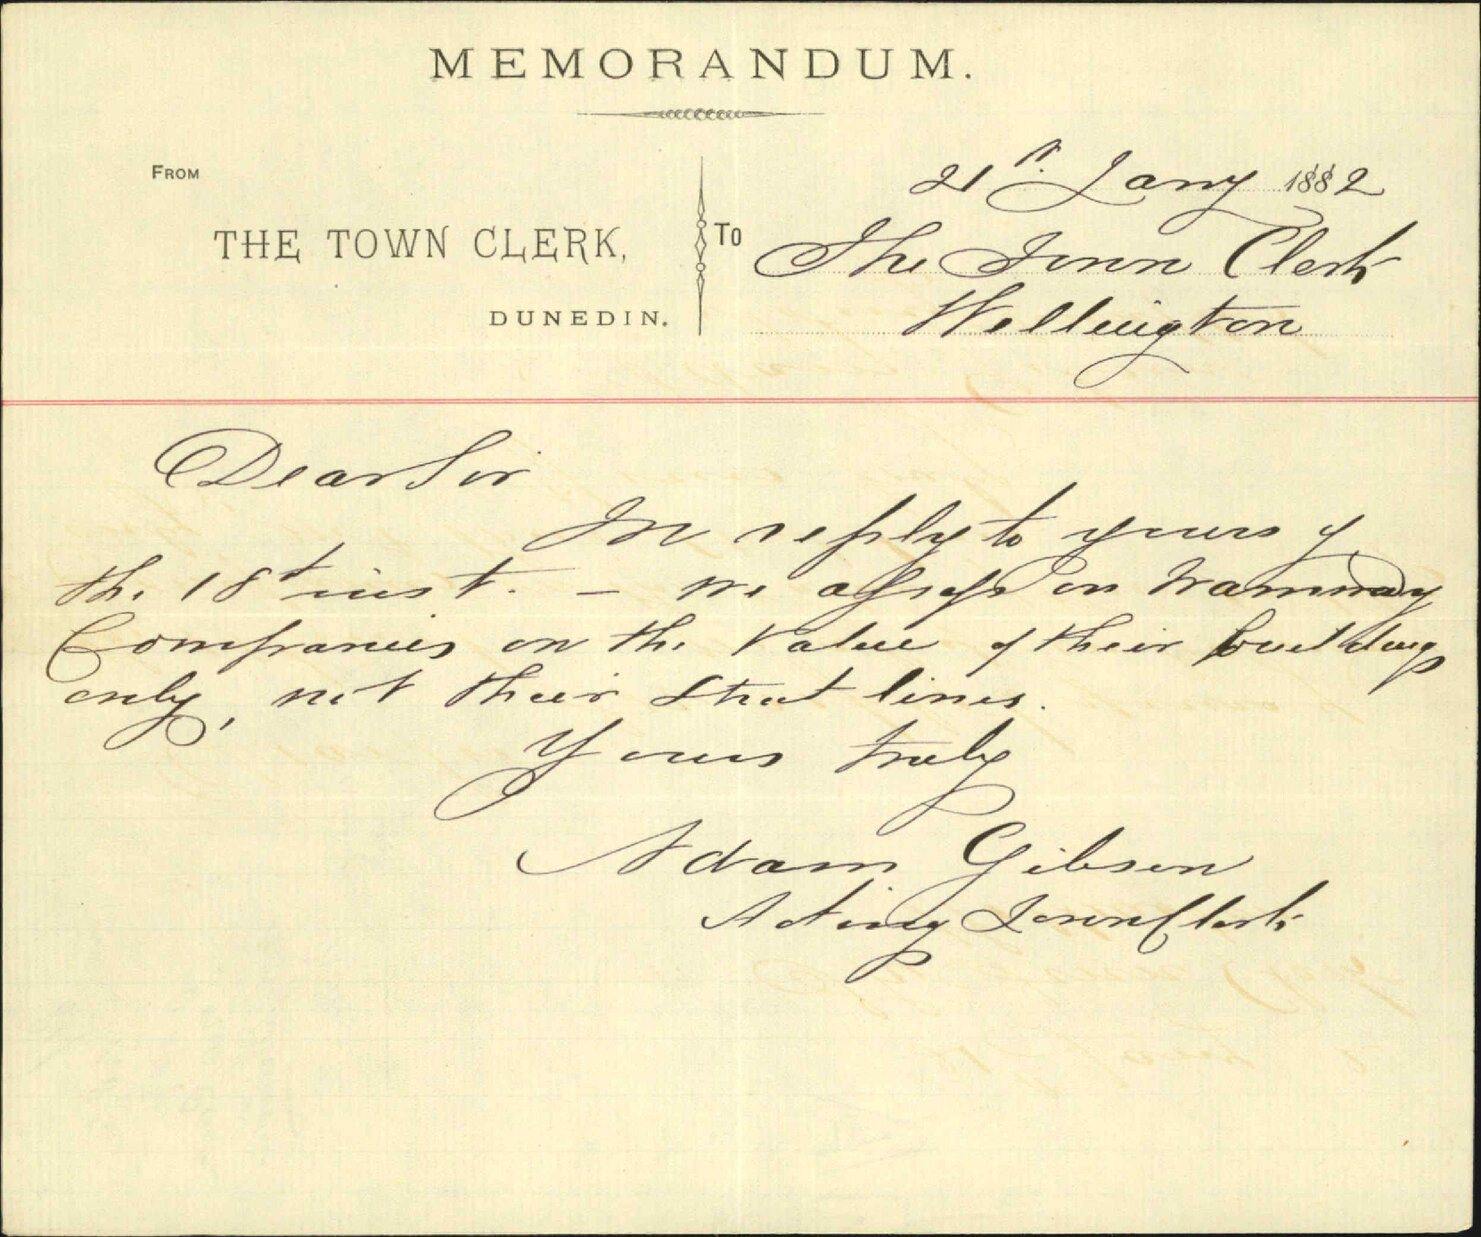 MEMORANDUM.
FROM
21st Jany 1882
THE TOWN CLERK,
To The Town Clerk
DUNEDIN.
Wellington
Dear Sir
In reply to yours of
the 18th inst. — we assess on Tramway
Companies on the value of their buildings
only, not their street lines.
Yours truly
Adam Gibson
Acting Town Clerk